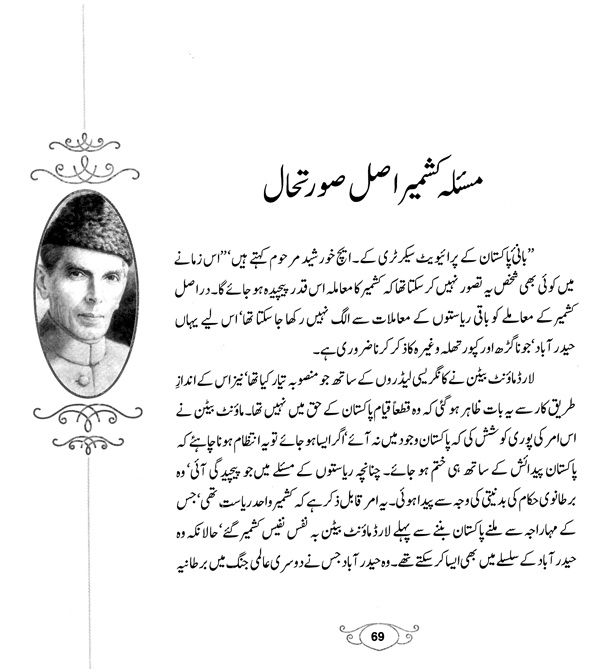 مسئلہ کشمیر اصل صورتحال
”بانیٔ پاکستان کے پرائیویٹ سیکرٹری کے۔ ایچ خورشید مرحوم کہتے ہیں‘ ”اس زمانے
میں کوئی بھی شخص یہ تصور نہیں کر سکتا تھا کہ کشمیر کا معاملہ اس قدر پیچیدہ ہو جائے گا۔ دراصل
کشمیر کے معاملے کو باقی ریاستوں کے معاملات سے الگ نہیں رکھا جا سکتا تھا‘ اس لیے یہاں
حیدرآباد‘ جوناگڑھ اور کپورتھلہ وغیرہ کا ذکر کرنا ضروری ہے۔
لارڈ ماؤنٹ بیٹن نے کانگریسی لیڈروں کے ساتھ جو منصوبہ تیار کیا تھا‘ نیز اس کے اندازِ
طریق کار سے یہ بات ظاہر ہو گئی کہ وہ قطعاً قیام پاکستان کے حق میں نہیں تھا۔ ماؤنٹ بیٹن نے
اس امر کی پوری کوشش کی کہ پاکستان وجود میں نہ آئے‘ اگر ایسا ہو جائے تو یہ انتظام ہونا چاہئے کہ
پاکستان پیدائش کے ساتھ ہی ختم ہو جائے۔ چنانچہ ریاستوں کے مسئلے میں جو پیچیدگی آئی‘ وہ
برطانوی حکام کی بدنیتی کی وجہ سے پیدا ہوئی۔ یہ امر قابل ذکر ہے کہ کشمیر واحد ریاست تھی‘ جس
کے مہاراجہ سے ملنے پاکستان بننے سے پہلے لارڈ ماؤنٹ بیٹن بہ نفس نفیس کشمیر گئے‘ حالانکہ وہ
حیدرآباد کے سلسلے میں بھی ایسا کر سکتے تھے۔ وہ حیدرآباد جس نے دوسری عالمی جنگ میں برطانیہ
69